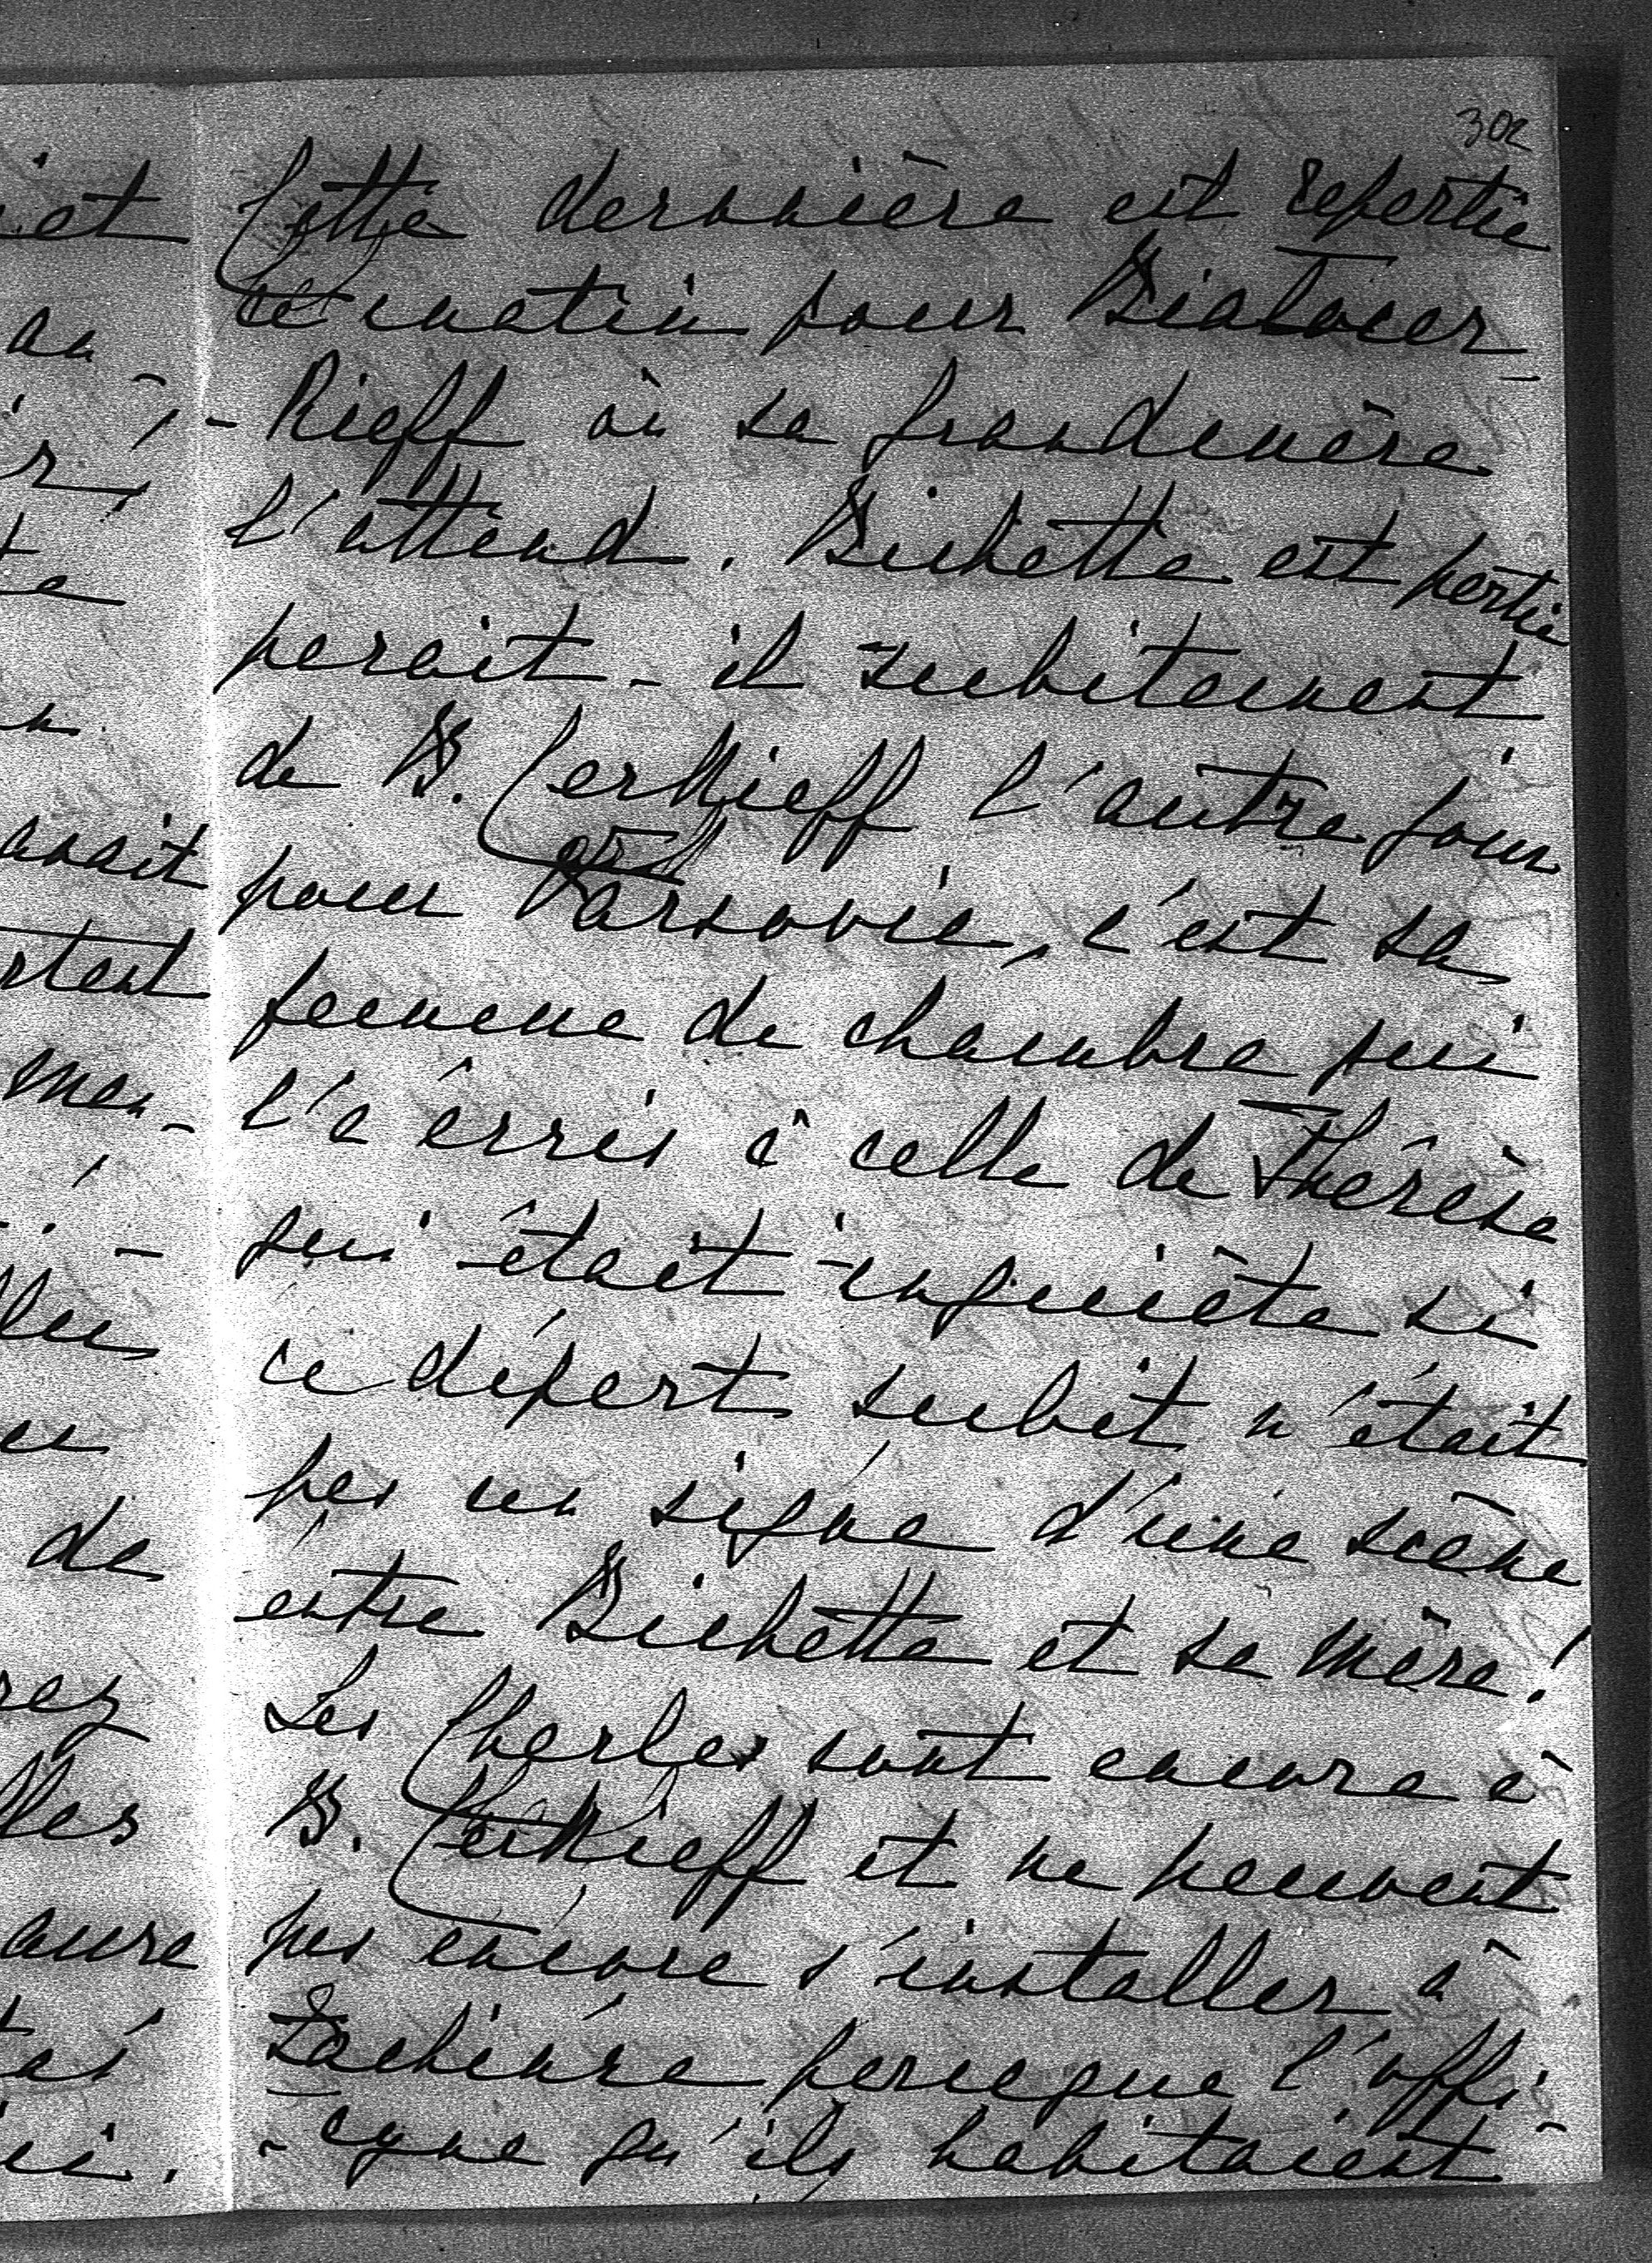 302
Cette dernière est repartie
ce matin pour Bialocer
-Kieff où sa grandmère
l'attend. Bichette est partie
parait-il subitement
de B. Cerkieff l'autre jour
pour Varsovie, c'est sa
femme de chambre qui
l'a écris à celle de Thérèse
qui était inquiète si
ce départ subit n'était
pas un signe d'une scène
entre Bichette et sa mère!
Les Charles sont encore à
B. Cerkieff et ne peuvent
pas encore s'installer à
parceque l'offi-
-cyne qu'ils habitaient